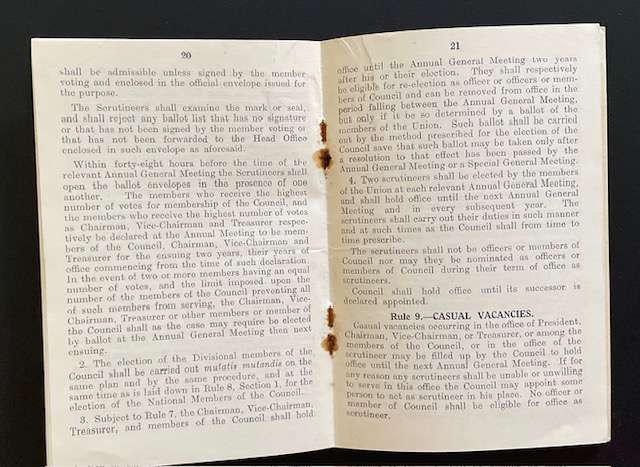 20
shall be admissible unless signed by the member
voting and enclosed in the official envelope issued for
the purpose.
The Scrutineers shall examine the mark or seal,
and shall reject any ballot list that has no signature
or that has not been signed by the member voting or
that has not been forwarded to the Head Office
enclosed in such envelope as aforesaid.
Within forty-eight hours before the time of the
relevant Annual General Meeting the Scrutineers shall
open the ballot envelopes in the presence of one
another. The members who receive the highest
number of votes for membership of the Council, and
the members who receive the highest number of votes
as Chairman, Vice-Chairman and Treasurer respec-
tively be declared at the Annual Meeting to be mem-
bers of the Council, Chairman, Vice-Chairman and
Treasurer for the ensuing two years, their years of
office commencing from the time of such declaration.
In the event of two or more members having an equal
number of votes, and the limit imposed upon the
number of the members of the Council preventing all
of such members from serving, the Chairman, Vice-
Chairman, Treasurer or other members or member of
the Council shall as the case may require be elected
by ballot at the Annual General Meeting then next
ensuing.
2. The election of the Divisional members of the
Council shall be carried out mutatis mutandis on the
same plan and by the same procedure, and at the
same time as is laid down in Rule 8, Section 1, for the
election of the National Members of the Council.
3. Subject to Rule 7, the Chairman, Vice-Chairman,
Treasurer, and members of the Council shall hold
21
office until the Annual General Meeting two years
after his or their election. They shall respectively
be eligible for re-election as officer or officers or mem-
bers of Council and can be removed from office in the
period falling between the Annual General Meeting,
but only if it be so determined by a ballot of the
members of the Union. Such ballot shall be carried
out by the method prescribed for the election of the
Council save that such ballot may be taken only after
a resolution to that effect has been passed by the
Annual General Meeting or a Special General Meeting.
4. Two scrutineers shall be elected by the members
of the Union at each relevant Annual General Meeting,
and shall hold office until the next Annual General
Meeting and in every subsequent year. The
scrutineers shall carry out their duties in such manner
and at such times as the Council shall from time to
time prescribe.
The scrutineers shall not be officers or members of
Council nor may they be nominated as officers or
members of Council during their term of office as
scrutineers.
Council shall hold office until its successor is
declared appointed.
Rule 9.—CASUAL VACANCIES.
Casual vacancies occurring in the office of President,
Chairman, Vice-Chairman, or Treasurer, or among the
members of the Council, or in the office of the
scrutineer may be filled up by the Council to hold
office until the next Annual General Meeting. If for
any reason any scrutineers shall be unable or unwilling
to serve in this office the Council may appoint some
person to act as scrutineer in his place. No officer or
member of Council shall be eligible for office as
scrutineer.